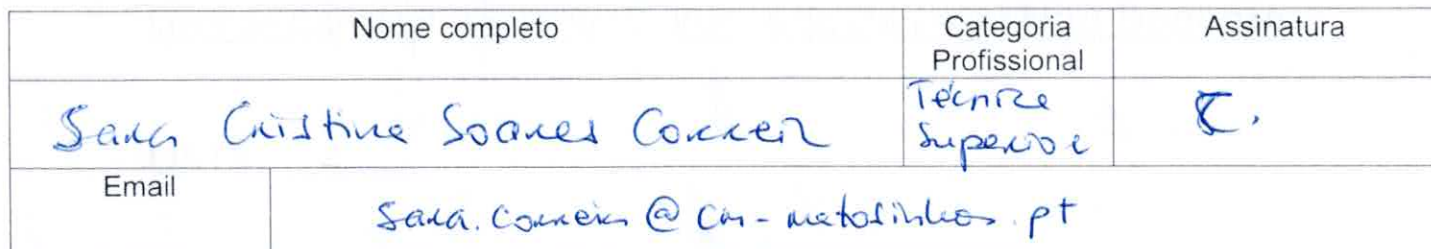 Nome completo
Categoria
Profissional
Assinatura
Sara Cristina Soares Correia
Técnica
Superior
Email
sara.correia@cm-matosinhos.pt